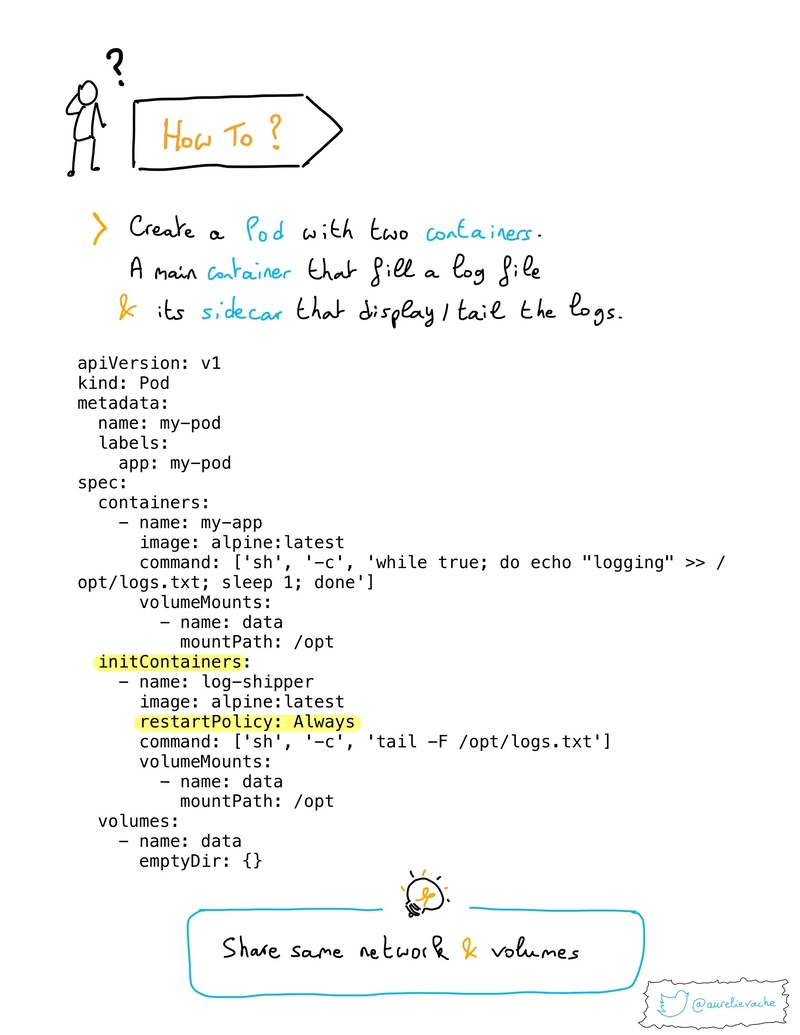 ?
How To ?
> Create a Pod with two containers.
A main container that fill a log file
& its sidecar that display/tail the logs.
apiVersion: v1
kind: Pod
metadata:
  name: my-pod
  labels:
    app: my-pod
spec:
  containers:
    - name: my-app
      image: alpine:latest
      command: ['sh', '-c', 'while true; do echo "logging" >> /
opt/logs.txt; sleep 1; done']
      volumeMounts:
        - name: data
          mountPath: /opt
  initContainers:
    - name: log-shipper
      image: alpine:latest
      restartPolicy: Always
      command: ['sh', '-c', 'tail -F /opt/logs.txt']
      volumeMounts:
        - name: data
          mountPath: /opt
  volumes:
    - name: data
      emptyDir: {}
Share same network & volumes
@aurelievache